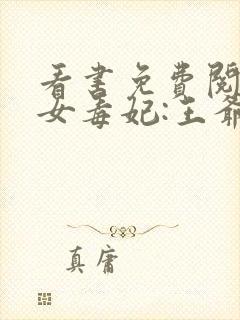 看书免費閱
女毒妃:王爺
真庸